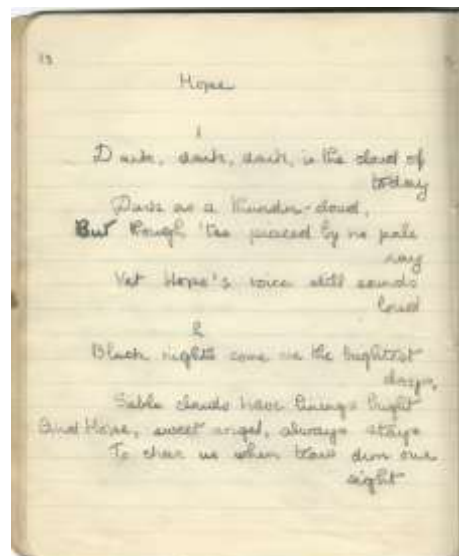 13
Hope
1
Dark, dark, dark, is the cloud of
today
Dark as a thunder-cloud,
But though 'tis pierced by no pale
ray
Yet Hope's voice still sounds
loud
2
Black nights come on the brightest
days,
Sable clouds have linings bright
And Hope, sweet angel, always stays
To cheer us when tears dim our
sight